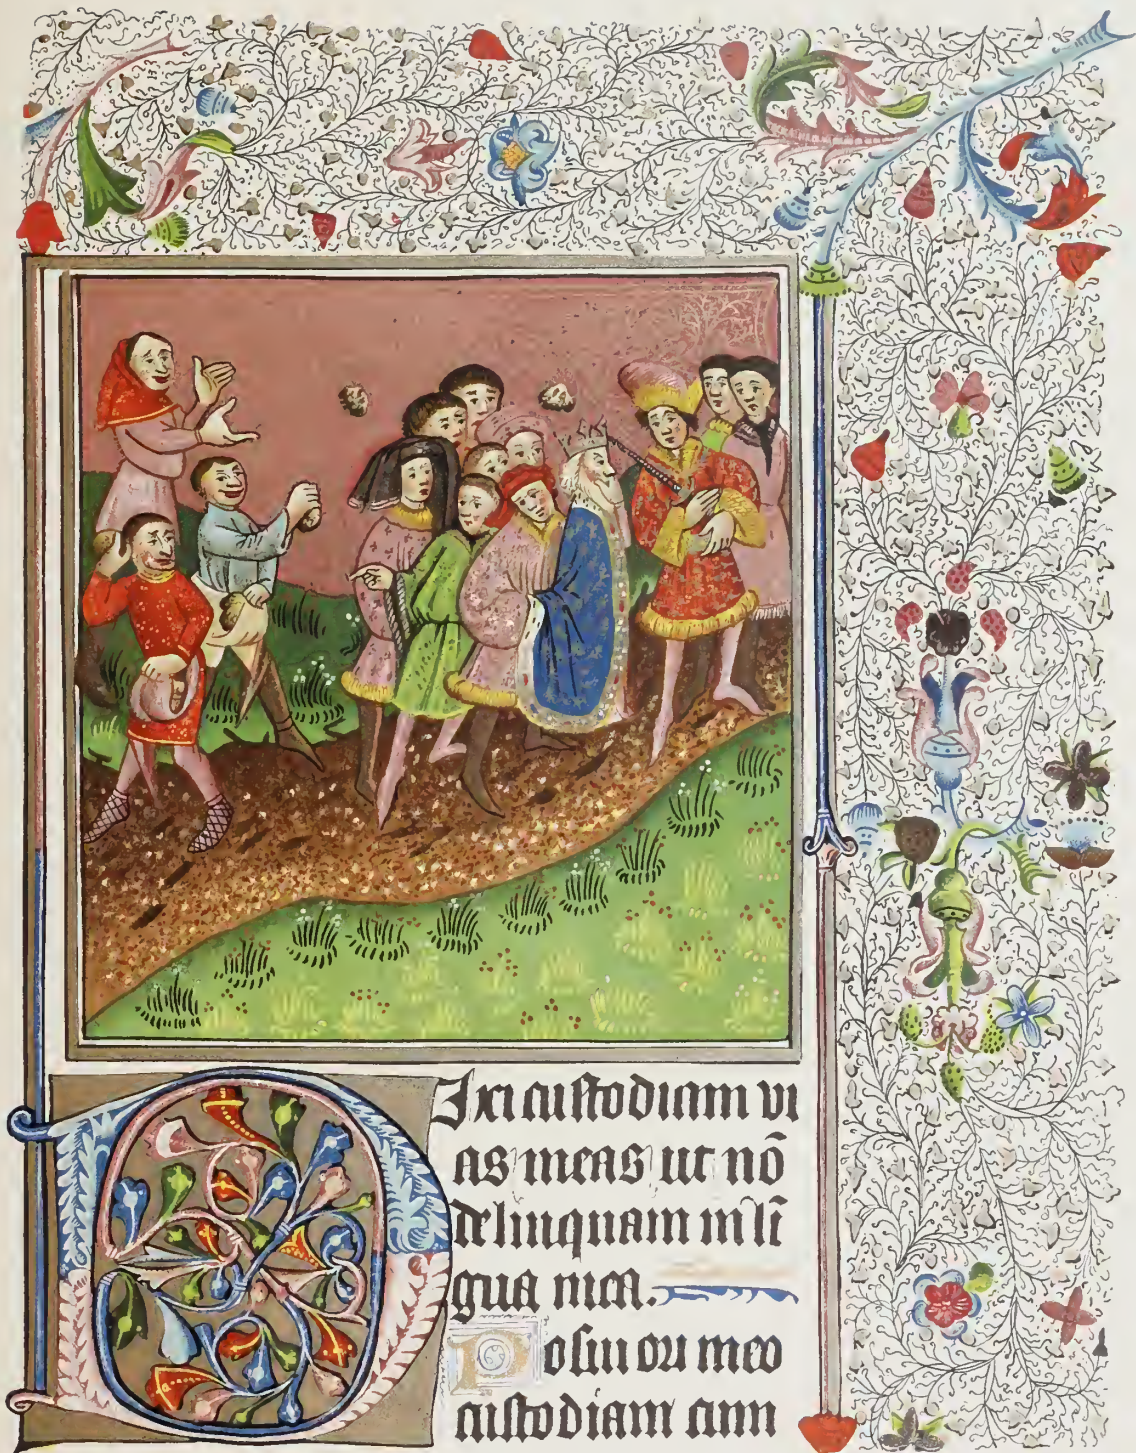 Dixi custodiam vi
as meas ut nō
delinquam in lī
gua mea.
Posui ori meo
custodiam cum